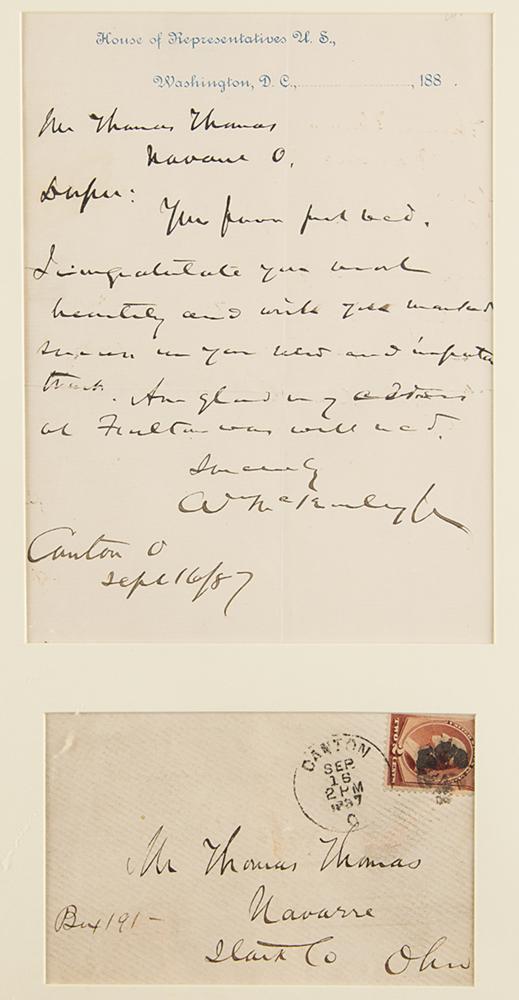 House of Representatives U. S.,
Washington, D. C., 188 .
Mr Thomas Thomas
Navarre O.
Dr Sir:
Your favor just recd.
I congratulate you most
heartily and wish you marked
success in your new and important
trust. Am glad my address
at Fulton was well recd.
Sincerely
Wm McKinley Jr
Canton O
Sept 16/87
CANTON
SEP
16
2 PM
1887
O
Mr Thomas Thomas
Navarre
Box 191 -
Stark Co Ohio